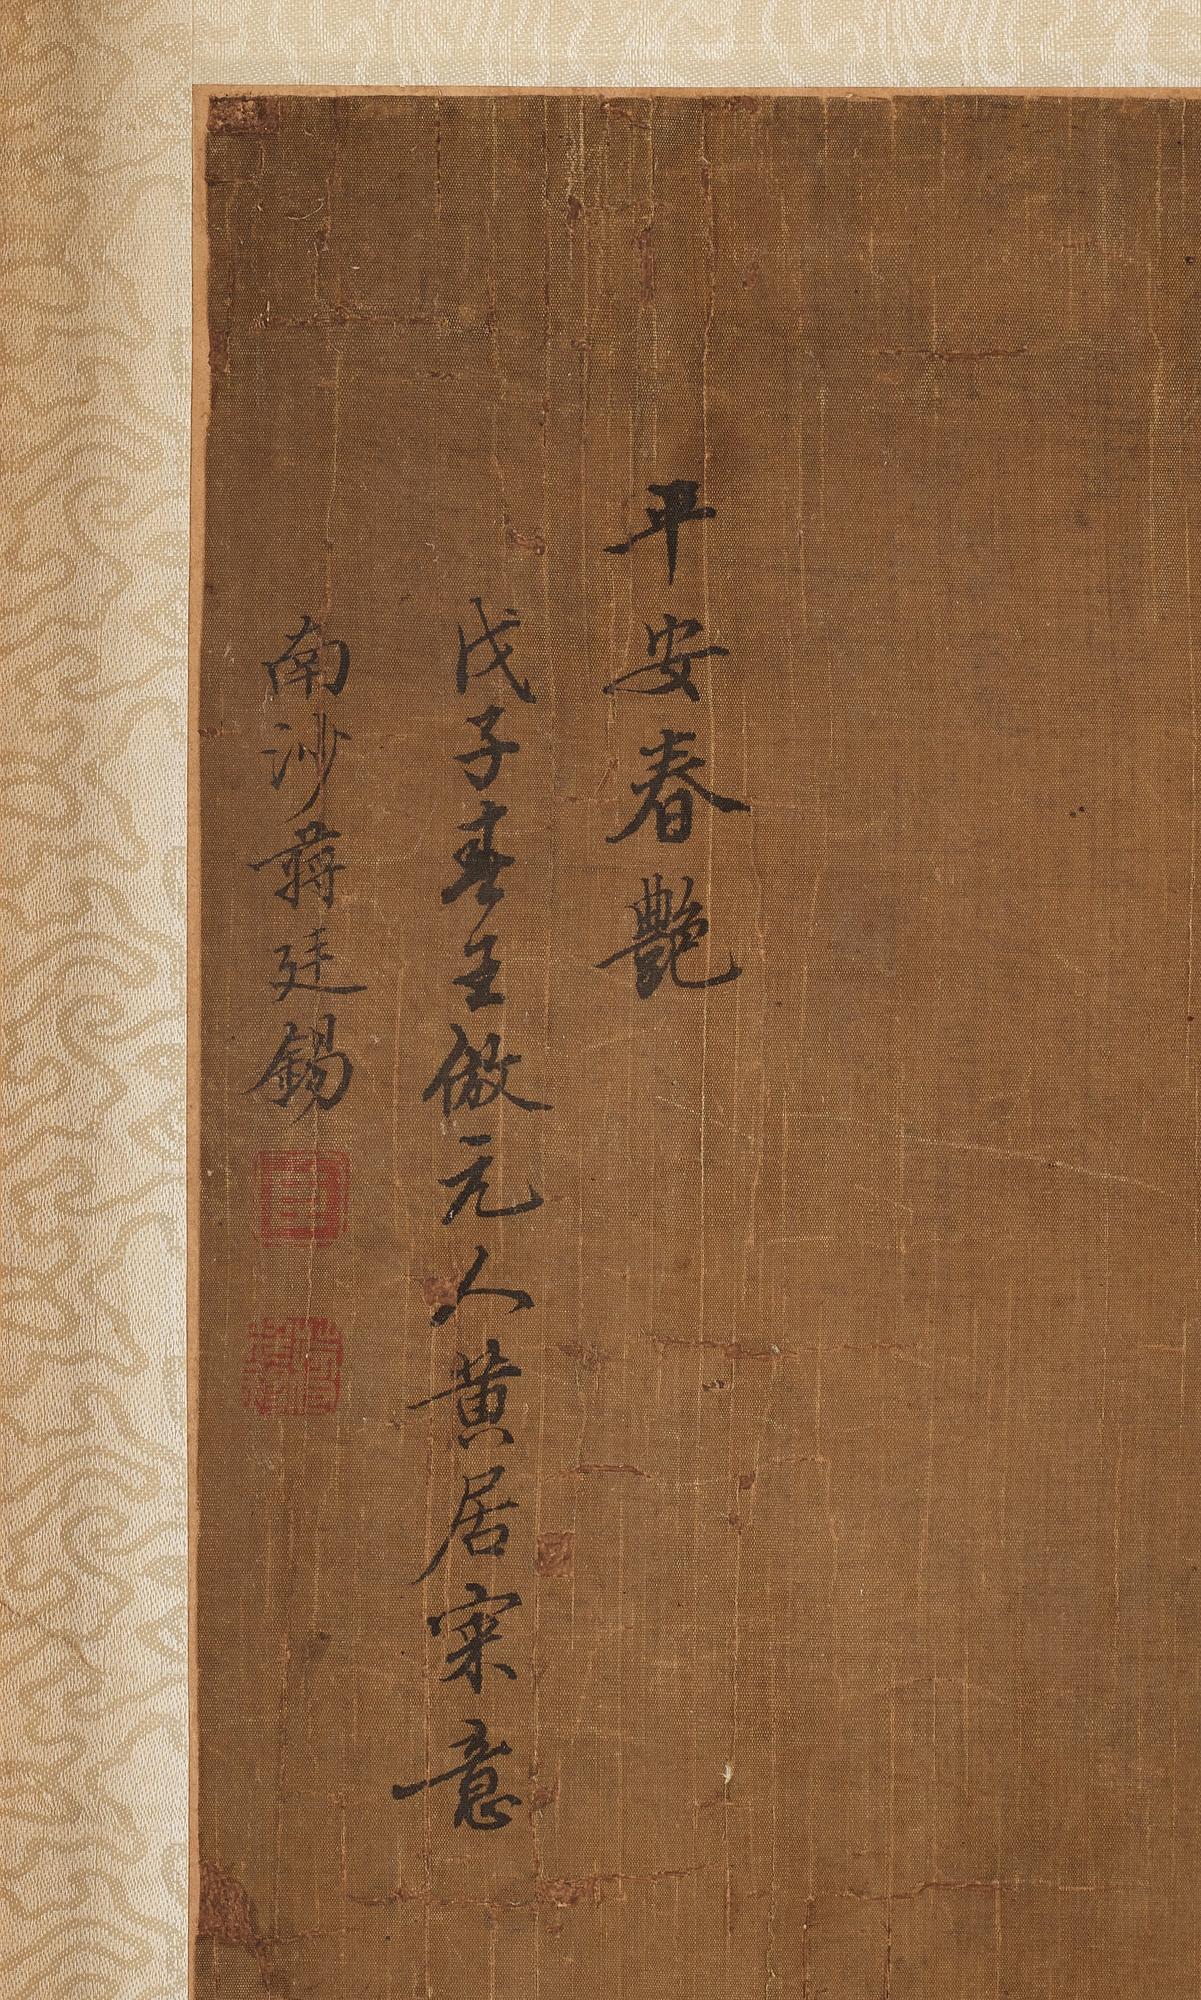 平安春艷
戊子春王倣元人黃居寀意
南沙蔣廷錫